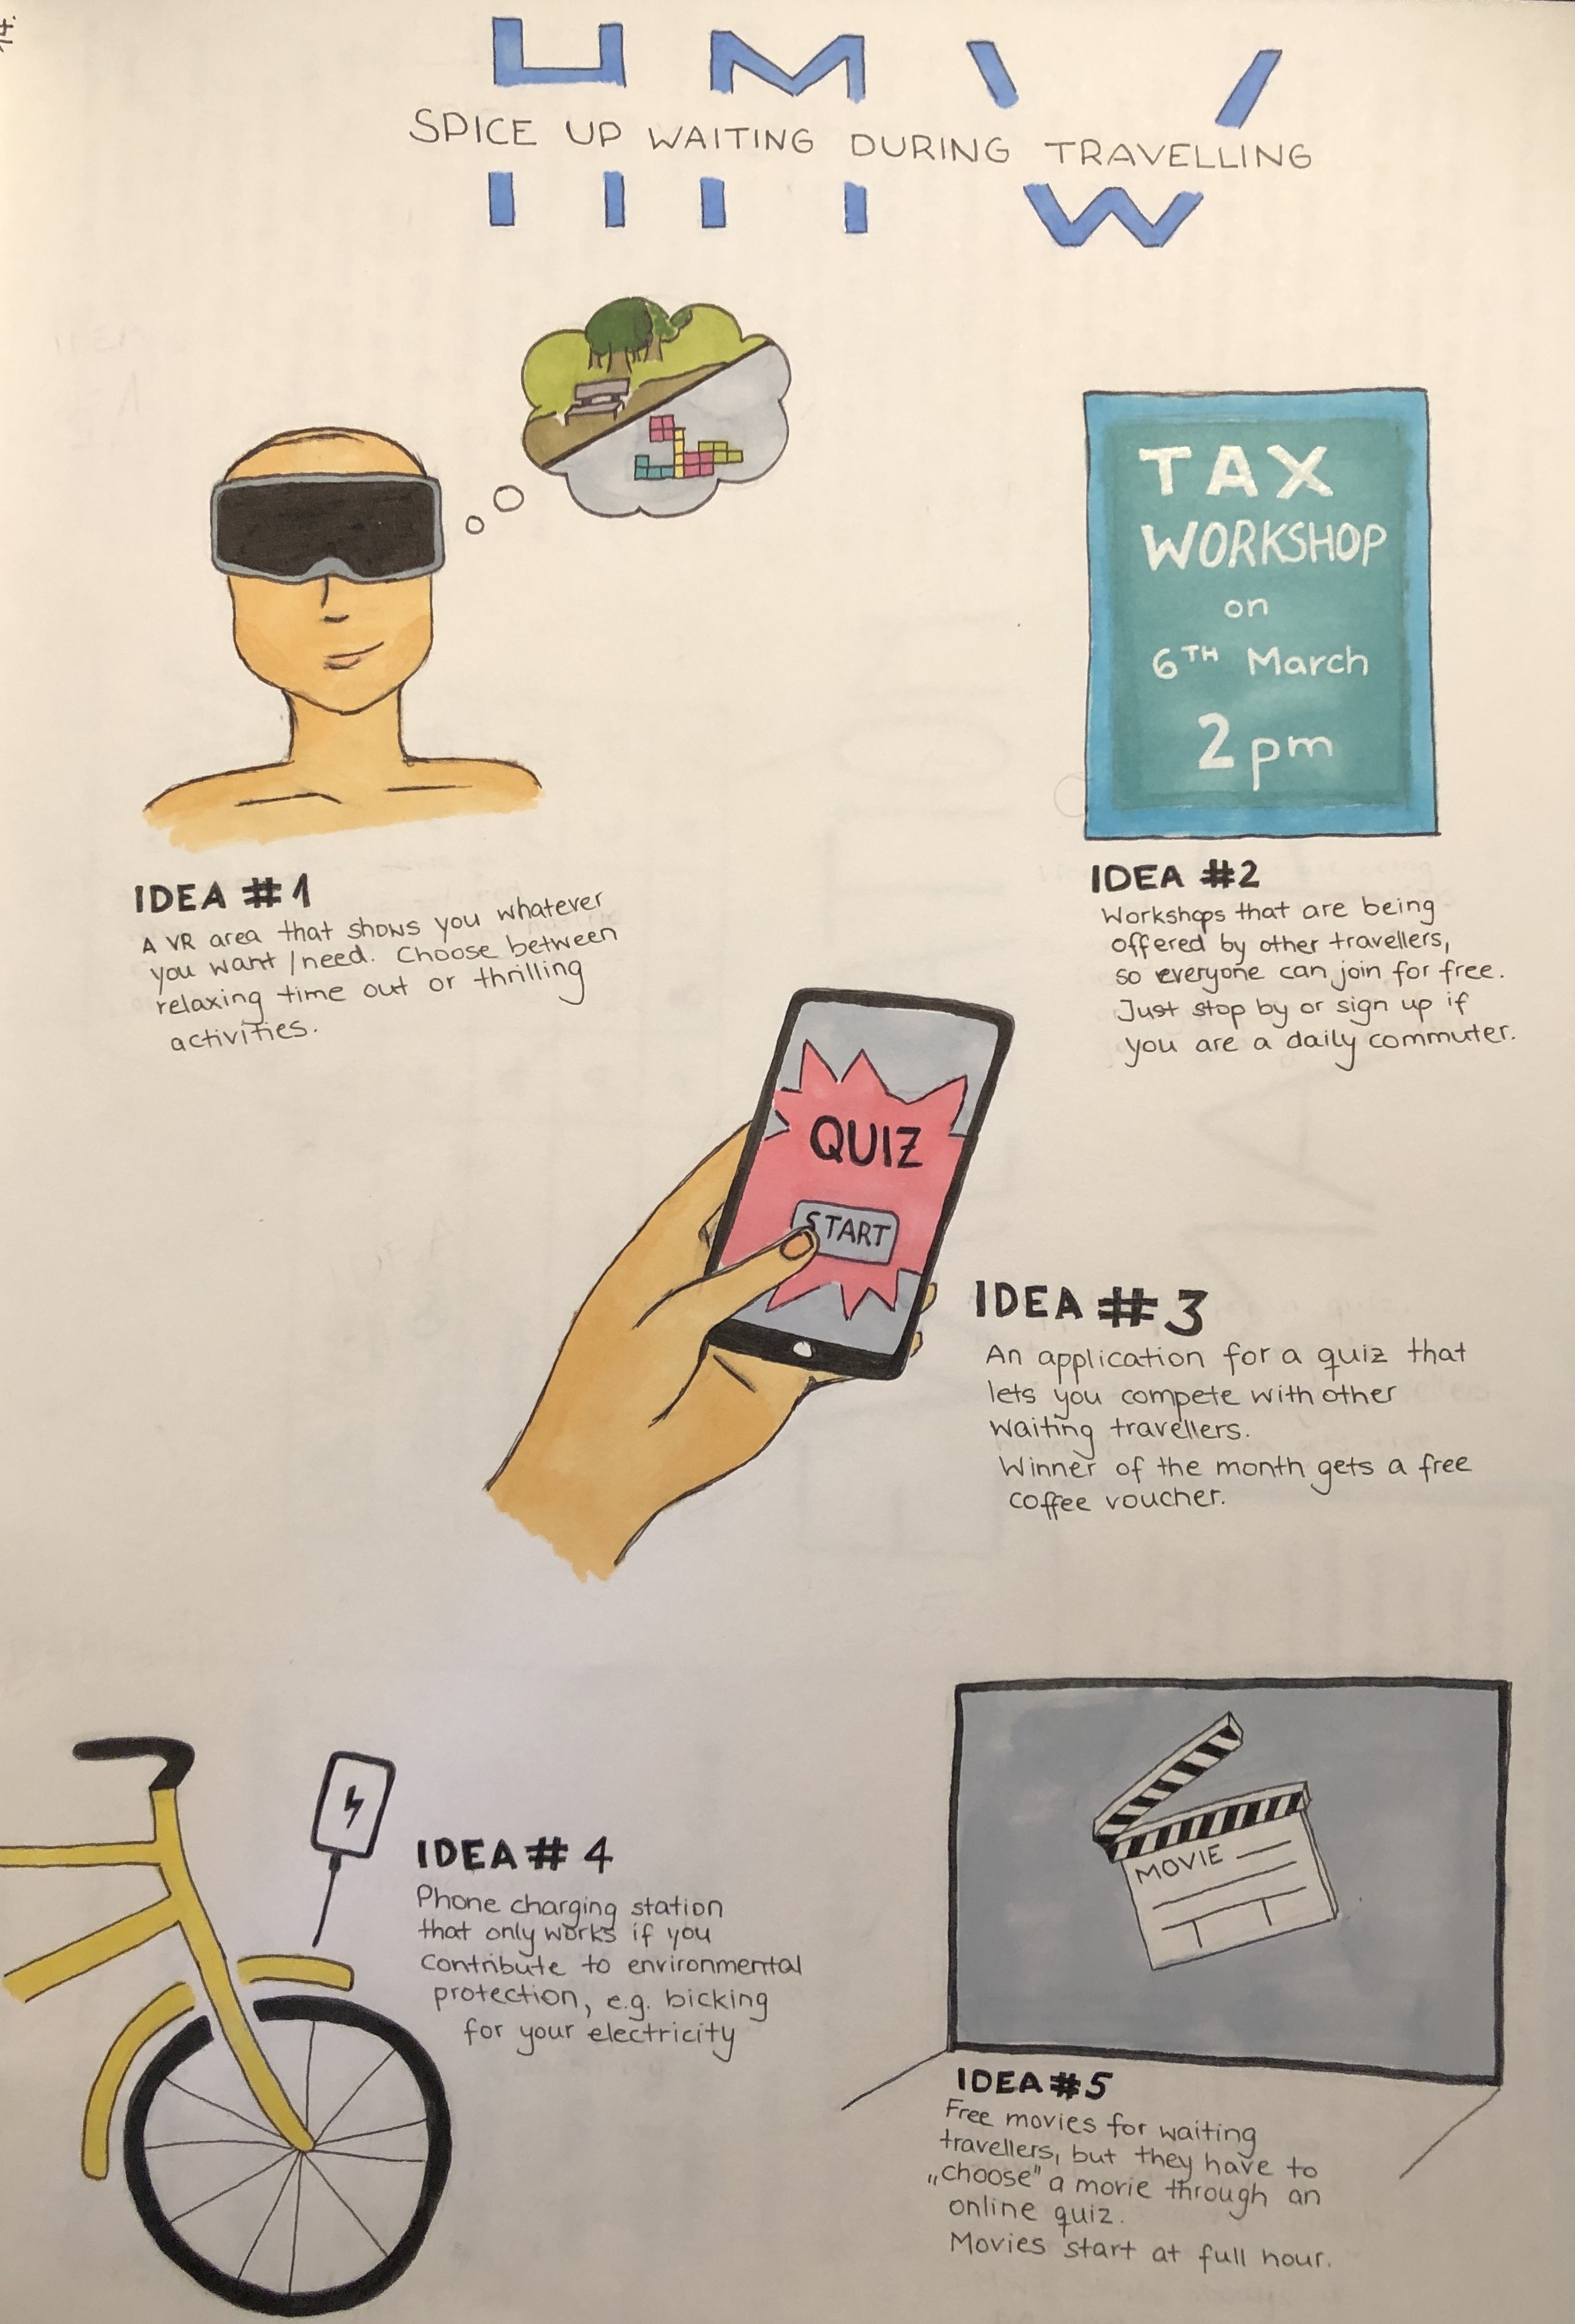 HMW
SPICE UP WAITING DURING TRAVELLING
TAX
WORKSHOP
on
6TH March
2 pm
IDEA #1
A VR area that shows you whatever
you want/need. Choose between
relaxing time out or thrilling
activities.
IDEA #2
Workshops that are being
offered by other travellers,
so everyone can join for free.
Just stop by or sign up if
you are a daily commuter.
QUIZ
START
IDEA #3
An application for a quiz that
lets you compete with other
waiting travellers.
Winner of the month gets a free
coffee voucher.
IDEA #4
Phone charging station
that only works if you
contribute to environmental
protection, e.g. bicking
for your electricity
MOVIE
IDEA #5
Free movies for waiting
travellers, but they have to
„choose" a movie through an
online quiz.
Movies start at full hour.